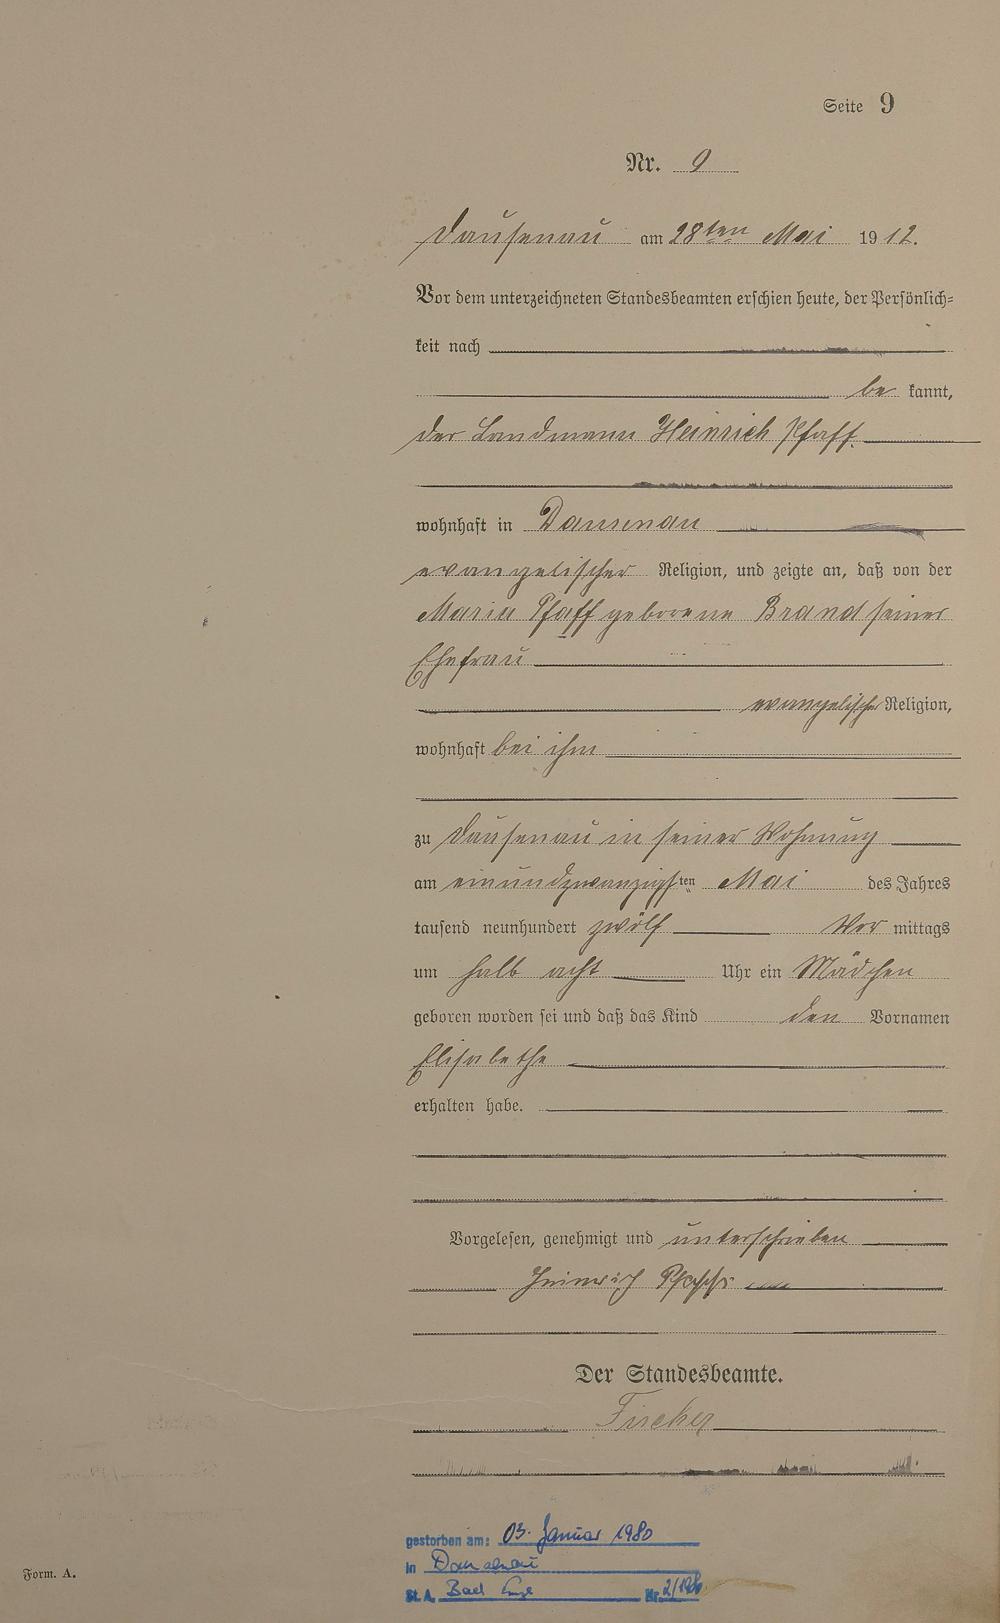 Seite 9
Nr. 9
Dausenau am 28ten Mai 1912.
Vor dem unterzeichneten Standesbeamten erschien heute, der Persönlich=
keit nach
be kannt,
der Landmann Heinrich Pfaff.
wohnhaft in Dausenau
evangelischer Religion, und zeigte an, daß von der
Maria Pfaff geborene Brand seiner
Ehefrau
evangelischer Religion,
wohnhaft bei ihm
zu Dausenau in seiner Wohnung
am einundzwanzigsten Mai des Jahres
tausend neunhundert zwölf Vor mittags
um halb acht Uhr ein Mädchen
geboren worden sei und daß das Kind den Vornamen
Elisabethe
erhalten habe.
Vorgelesen, genehmigt und unterschrieben
Heinrich Pfaff
Der Standesbeamte.
Fischer
gestorben am: 03. Januar 1980
in Dausenau
St. A. Bad Ems Nr. 2/1980
Form. A.